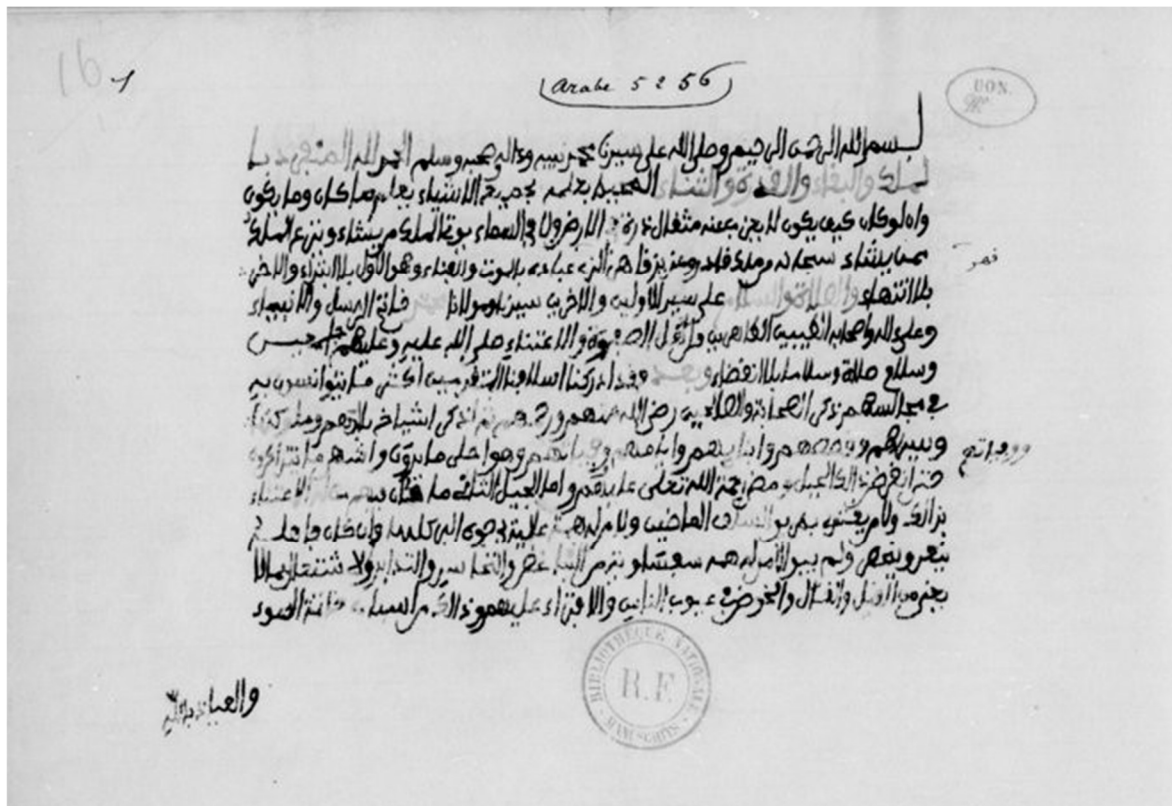 16
1
Arabe 5256
DON.
بسم الله الرحمن الرحيم وصلى الله على سيدنا محمد نبيه وءاله وصحبه وسلم الحمد لله المنفرد با
لملك والبقاء والقدرة والثناء المحيط بعلمه بجميع الاشياء يعلم ما كان وما يكون
وان لو كان كيف يكون لا يعزب عنه مثقال ذرة في الارض ولا في السماء يوتي الملك من يشاء وينزع الملك
ممن يشاء سبحانه من ملك قادر وعزيز قاهر الذي عباده بالموت والفناء وهو الاول بلا ابتداء والاخر
قهر
بلا انتهاء والصلاة والسلام على سيد الاولين والاخرين سيدنا ومولانا خاتم الرسل والانبياء
وعلى ءاله واصحابه الطيبين الطاهرين الصفوة والاعتناء صلى الله عليه وعليهم اجمعين
وسلم صلاة وسلاما بلا انقضاء وبعد فقد ادركنا اسلافنا المتقدمين اكثر ما يتوانسون به
في مجالسهم ذكر الصحابة والصالحين رضي الله عنهم ورحمهم ثم ذكر اشياخ بلادهم وملوكها
وسيرهم وقصصهم وانبايهم وايامهم ووفياتهم وهو احلى ما يرون واشهى ما يتذاكرون
حتى انقرض ذلك الجيل ومضى رحمة الله تعالى عليهم واما الجيل التالي الاعتناء
بذلك ولا من يقتدي السلف الماضين ولا من له همة
من التباغض والتحاسد والتدابر والاشتغال بما لا
يعني من القيل والقال والخوض في عيوب الناس والافتراء عليهم وذلك من اسباب خاتمة السوء
والعياذ بالله
BIBLIOTHEQUE NATIONALE
R.F.
MANUSCRITS